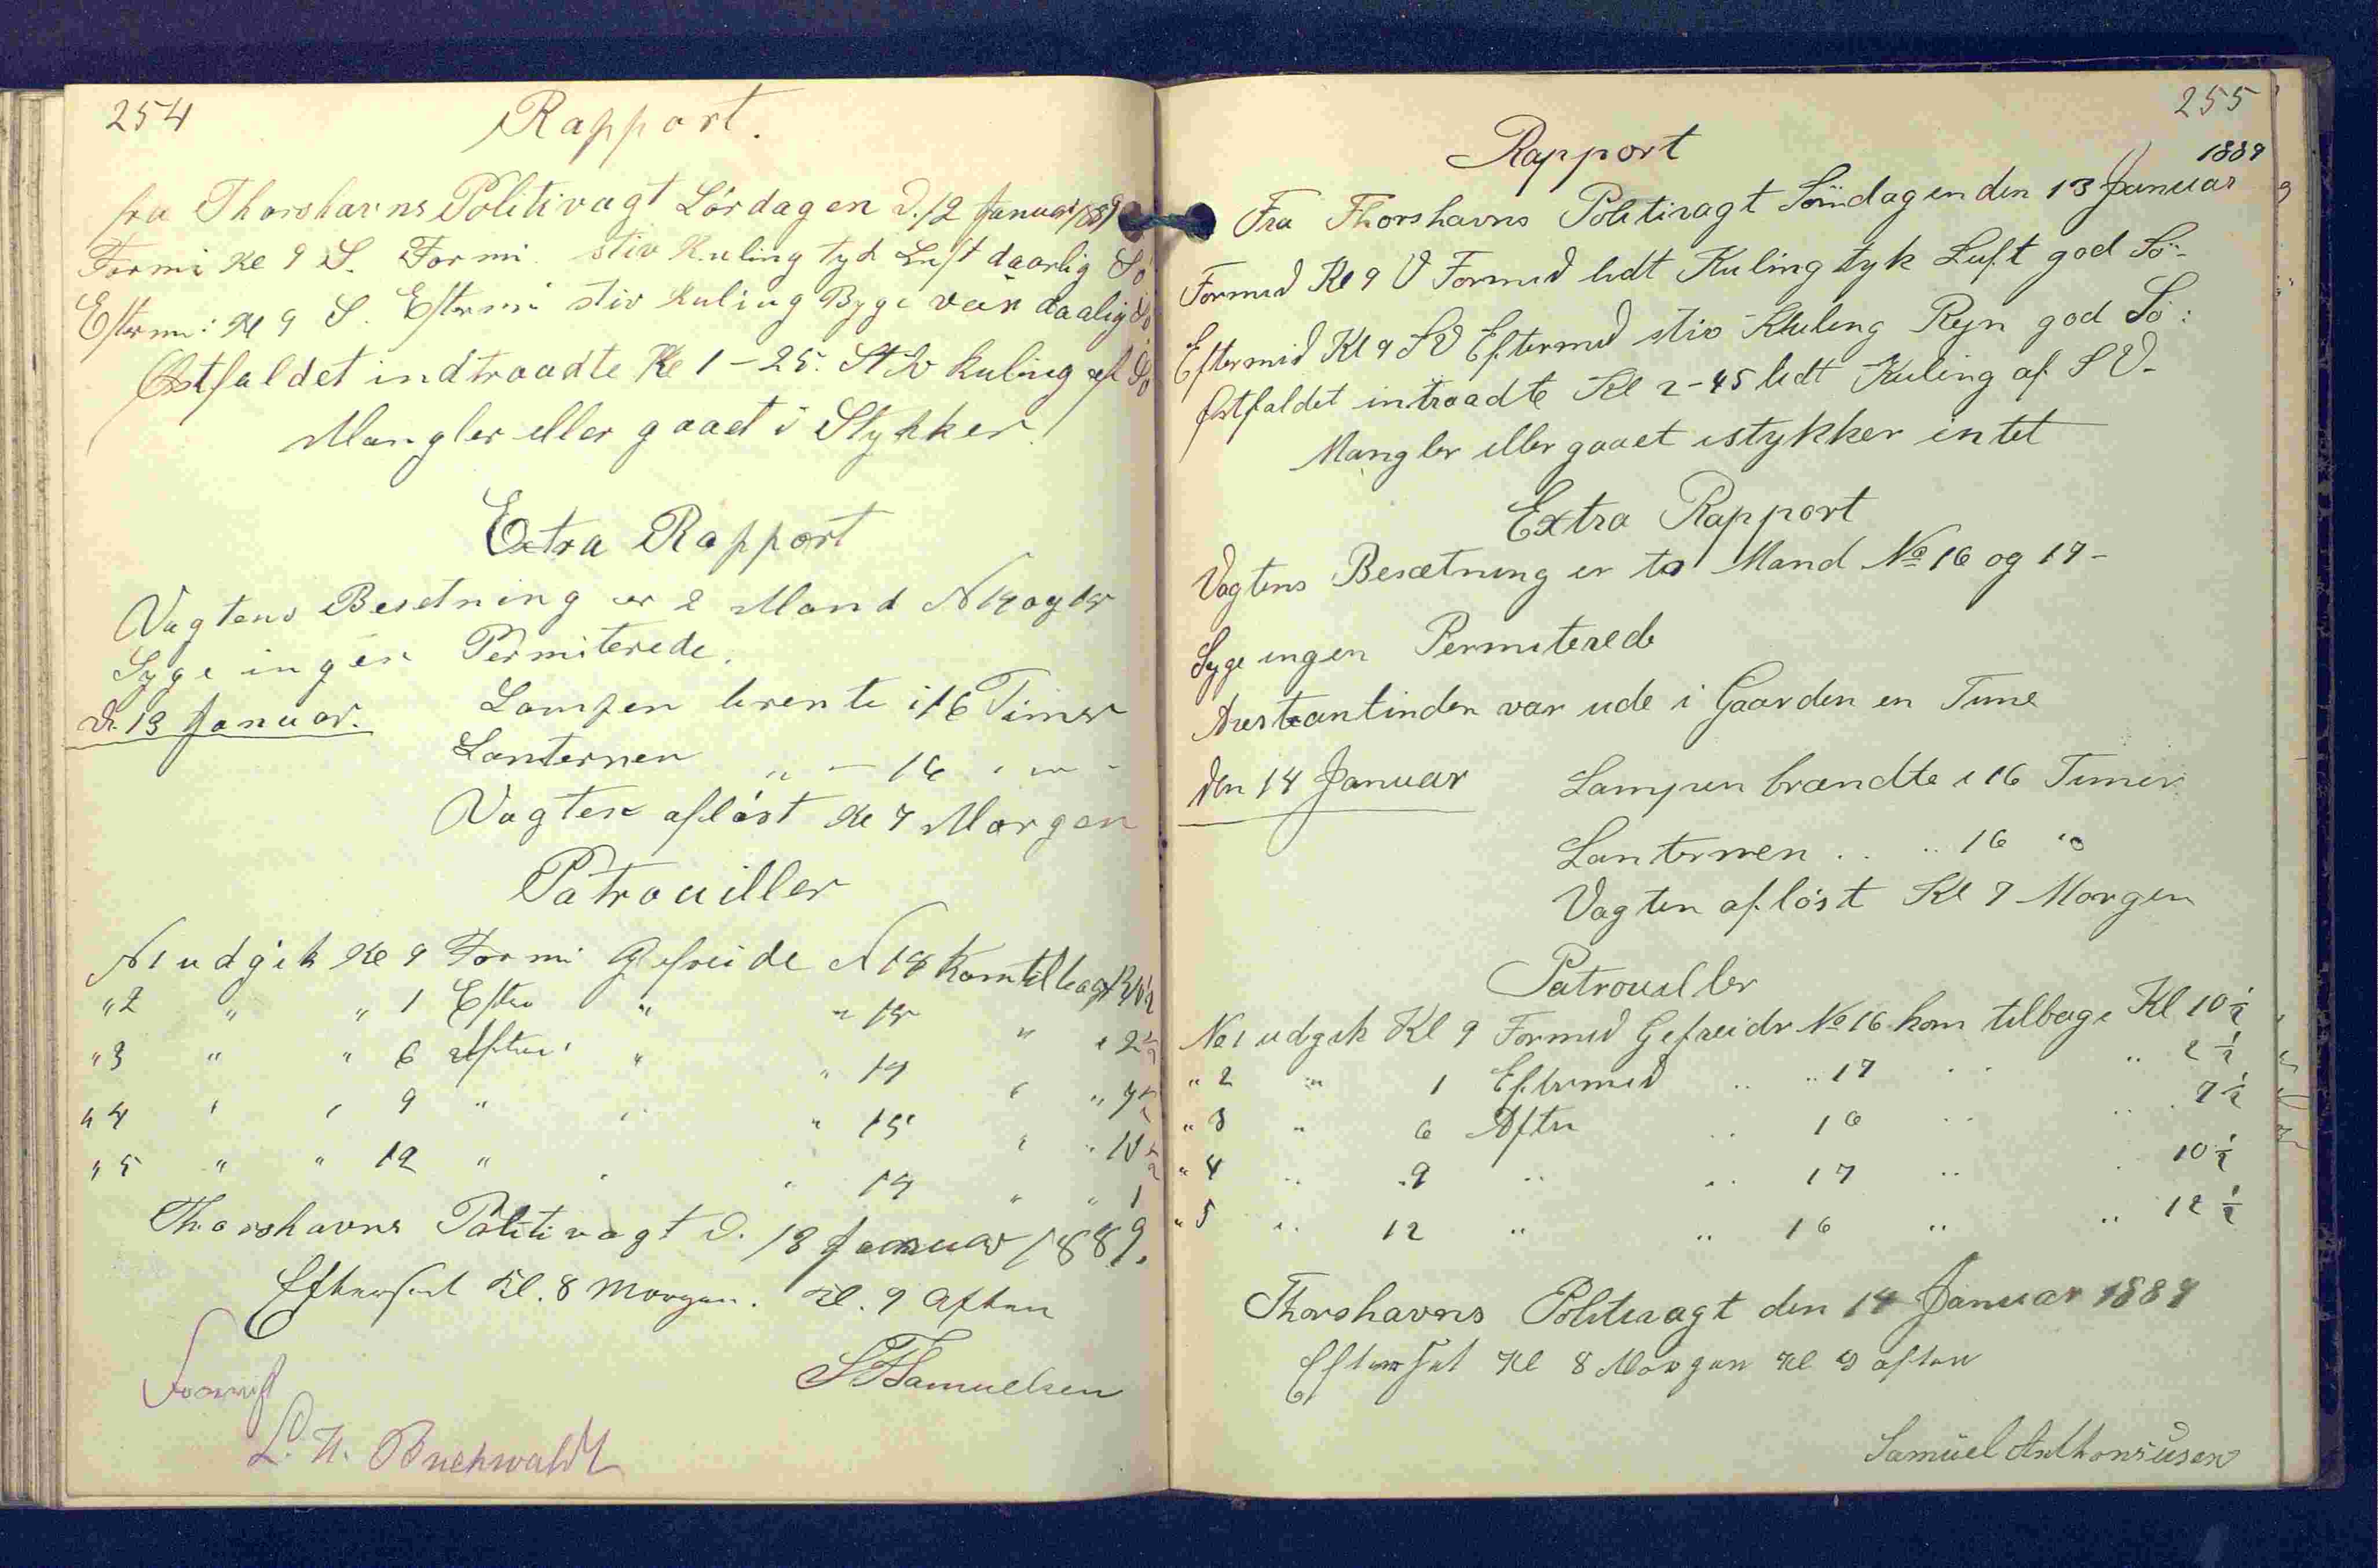 254
Rapport.
fra Thorshavns Politivagt Lördagen d. 12 Januar 1889
Formi Kl 9 S. Formi. stiv Kuling tyk Luft daarlig Sö
Efterm: Kl 9 S. Eftermi stiv Kuling Byge vär daalig Sö
Østfaldet indtraadte Kl 1-25. Stiv Kuling af Sö
Mangler eller gaaet i Stykker
Extra Rapport
Vagtens Besetning er 2 Mand N 14 og 15
Syge ingen Permiterede.
D. 13 Januar. Lampen brente i 16 Timer
Lanternen " — 16
Vagten aflöst Kl 7 Morgen
Patrouiller
N 1 udgik Kl 9 Formi Gefreide N 14 Kom tilbage
" 2 " " 1 Efter " " 15 " " 2 1/2
" 3 " " 6 Aften " " 14 " " 7 1/2
" 4 " " 9 " " " 15 " " 10 1/2
" 5 " " 12 " " " 14 " " 1
Thorshavns Politivagt d. 13 Januar 1889.
Efterset Kl. 8 Morgen. Kl. 9 Aften
SFSamuelsen
L. N. Buchwaldt
255
Rapport
1889
Fra Thorshavns Politivagt Söndagen den 13 Januar
Formid Kl 9 V Formid lidt Kuling tyk Luft god Sö-
Eftermid Kl 9 SV Eftermid stiv Kuling Reyn god Sö:
Østfaldet intraadte Kl 2-45 lidt Kuling af SV-
Mangler eller gaaet istykker intet
Extra Rapport
Vagtens Besætning er to Mand No 16 og 17-
Syge ingen Permiterede
Arestantinden var ude i Gaarden en Time
den 14 Januar Lampen brændte i 16 Timer
Lanternen .. .. 16 "
Vagten aflöst Kl 7 Morgen
Patrouller
No 1 udgik Kl 9 Formid Gefreidr No 16 kom tilbage Kl 10 1/2
" 2 " 1 Eftermid .. .. 17 .. .. 2 1/2
" 3 " 6 Aften .. 16 .. .. 7 1/2
" 4 .. 9 .. .. 17 .. 10 1/2
" 5 .. 12 .. .. 16 .. .. 12 1/2
Thorshavns Politivagt den 14 Januar 1889
Efterset Kl 8 Morgen Kl 9 aften
Samüel Anthoniusen